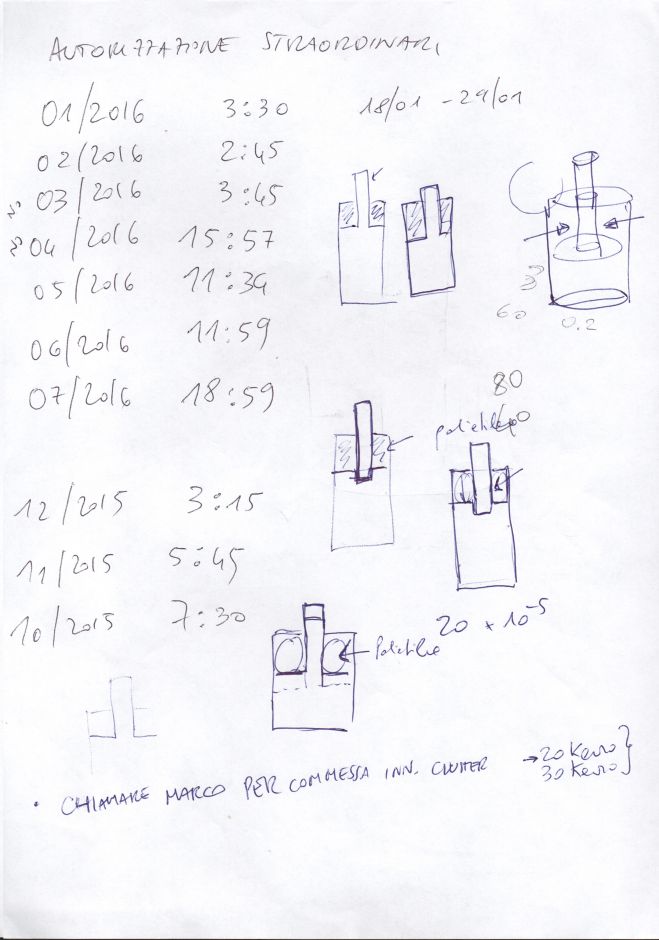 AUTORIZZAZIONE STRAORDINARI
01/2016 3:30 18/01 - 29/01
02/2016 2:45
03/2016 3:45
04/2016 15:57
05/2016 11:34
60 0.2
06/2016 11:59
07/2016 18:59
80
12/2015 3:15
11/2015 5:45
10/2015 7:30
20 x 10-5
• CHIAMARE MARCO PER COMMESSA INN. CLUSTER → 20 Keuro
30 Keuro